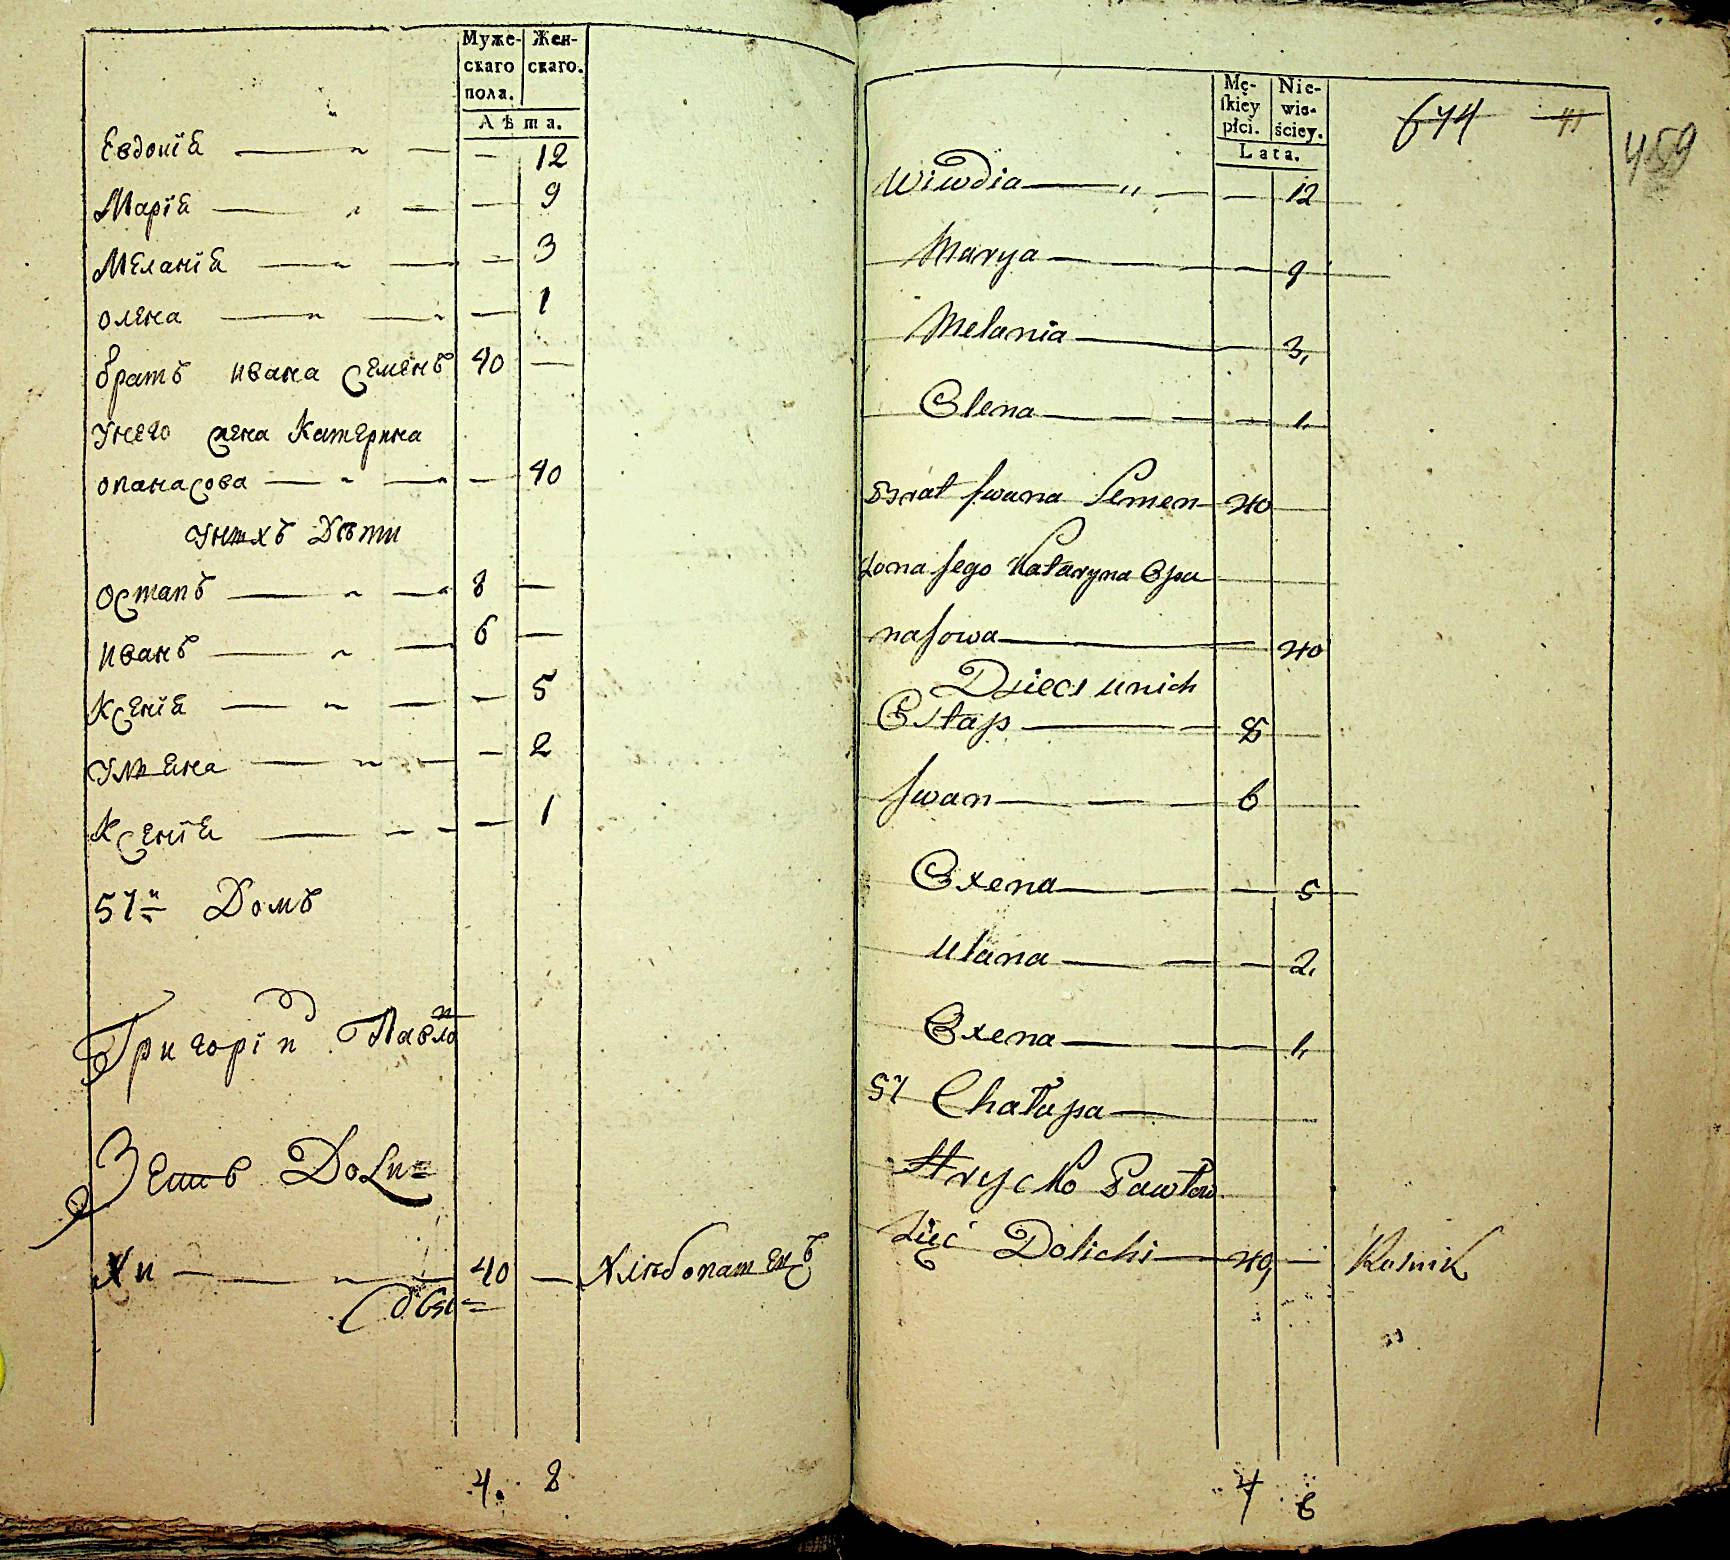 Муже-
скаго
пола.
Жен-
скаго.
Лѣта.
Евдокїя 12
Марїя 9
Меланїя 3
олена 1
братъ ивана Семенъ 40
унего жена Катерина
опанасова 40
унихъ Дѣти
остапъ 8
иванъ 6
Ксенїя 5
улияна 2
Ксенїя 1
57й Домъ
Григорій Павло
Зеть Доли=
хи 40 Хлѣбопашецъ
4. 8
Mę-
ſkiey
płci.
Nie-
wie-
ściey.
Lata.
644
459
Wiwdia 12
Marya 9
Melania 3
Olena 1
Brat Jwana Semen 40
Żona Jego Kataryna Opa
nasowa 40
Dzieci unich
Ostap 8
Jwan 6
Oxena 5
Ulana 2
Oxena 1
57 Chałupa
Hrycko Pawłow
Zięć Dolichi 40 Rolnik
4 8